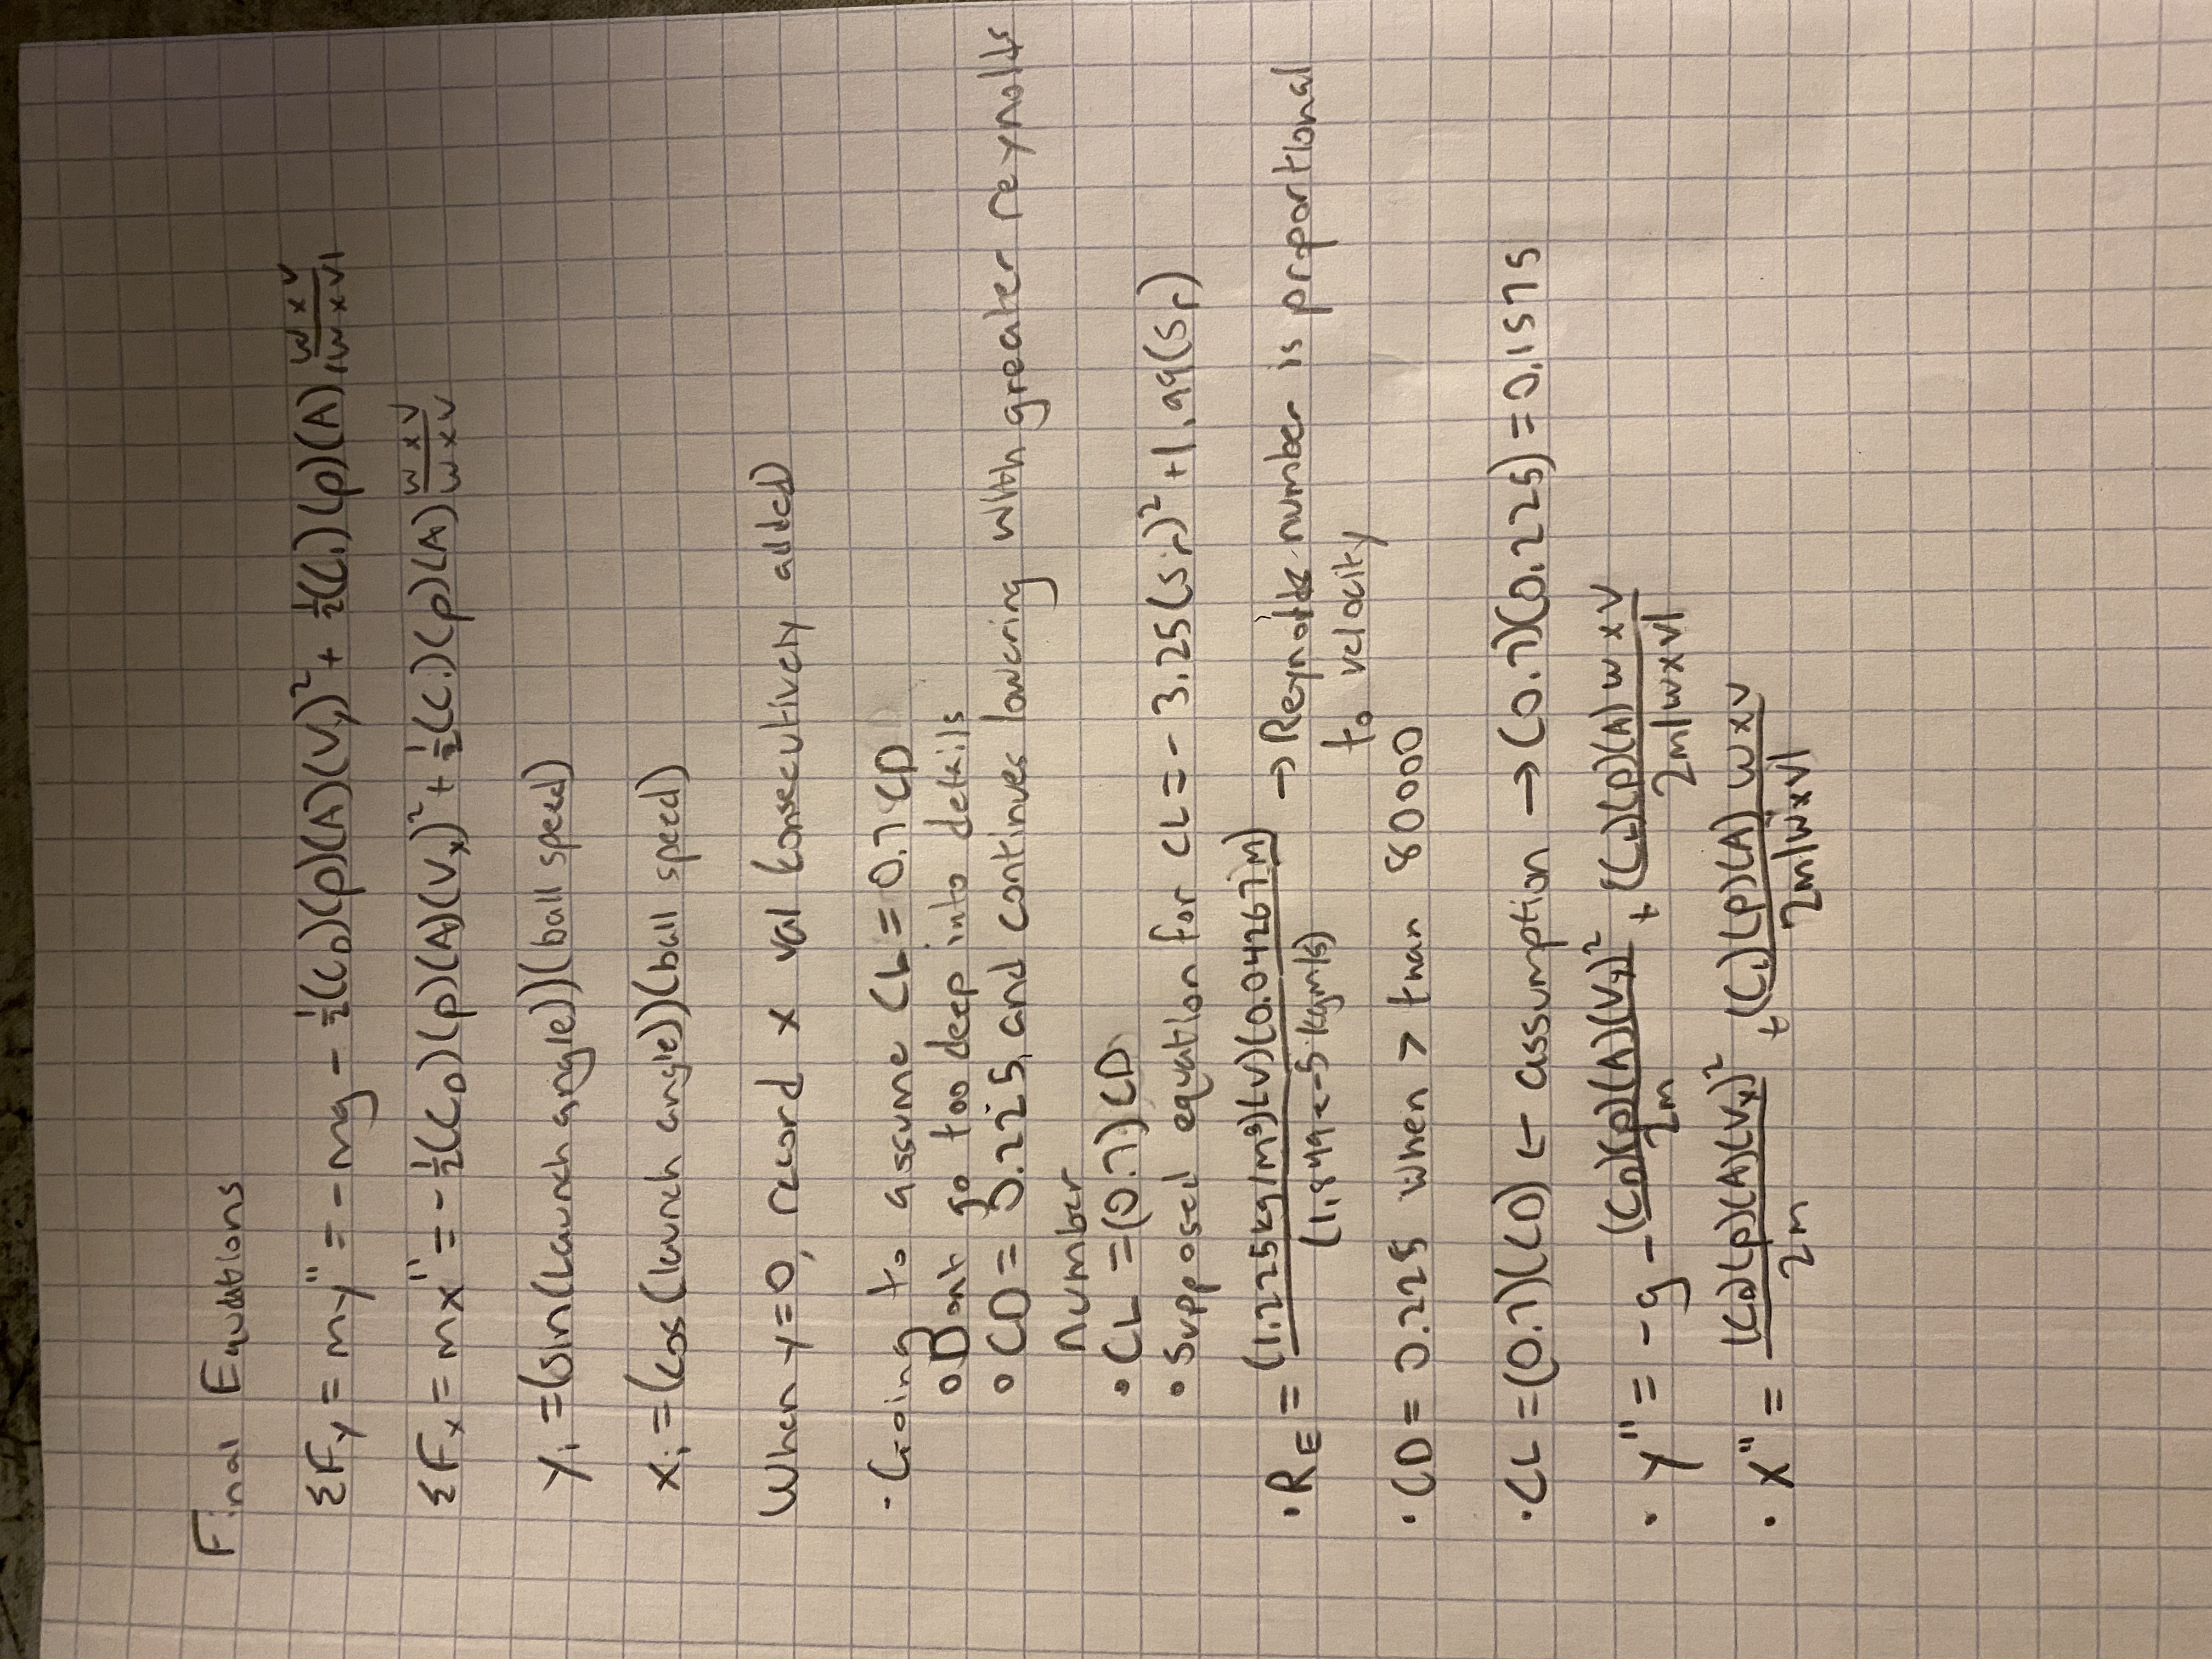 Final Equations
ΣFy = my'' = -mg - ½(CD)(p)(A)(Vy)² + ½(CL)(p)(A) w x v / |w x v|
ΣFx = mx'' = -½(CD)(p)(A)(Vx)² + ½(CL)(p)(A) w x v / w x v
yi =(sin(Launch angle))(ball speed)
xi =(cos(launch angle))(ball speed)
When y=0, record x val (consecutively added)
- Going to assume CL = 0.7 CD
o Dont go too deep into details
o CD = 0.225, and continues lowering with greater reynolds
number
• CL =(0.7)CD
• Supposed equation for CL = - 3.25(Sr)² +1.99(Sr)
• RE = (1.225kg/m³)(v)(0.04267m) / (1.849e-5 kgm/s) → Reynolds number is proportional
to velocity
• CD = 0.225 when > than 80000
• CL =(0.7)(CD) ← assumption → (0.7)(0.225) = 0.1575
• y'' = -g - (CD)(p)(A)(Vy)² / 2m + (CL)(p)(A) w x v / 2m|w x v|
• x'' = (CD)(p)(A)(Vx)² / 2m + (CL)(p)(A) w x v / 2m|w x v|